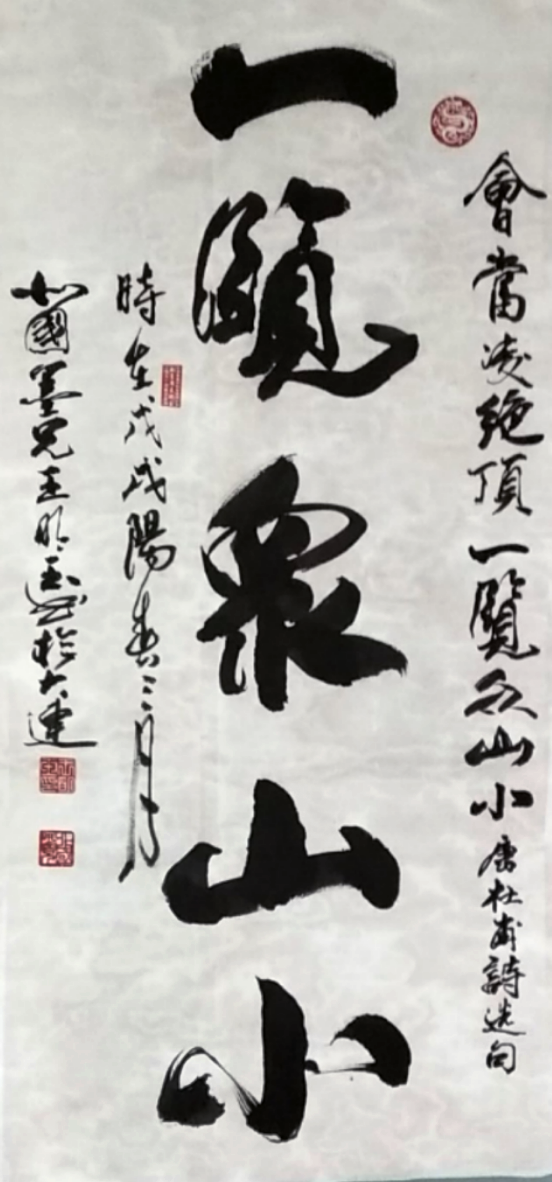 會當凌絕頂一覽众山小唐杜甫詩选句
一覽衆山小
時在戊戌陽春三月
國墨兄王明玉書於大連